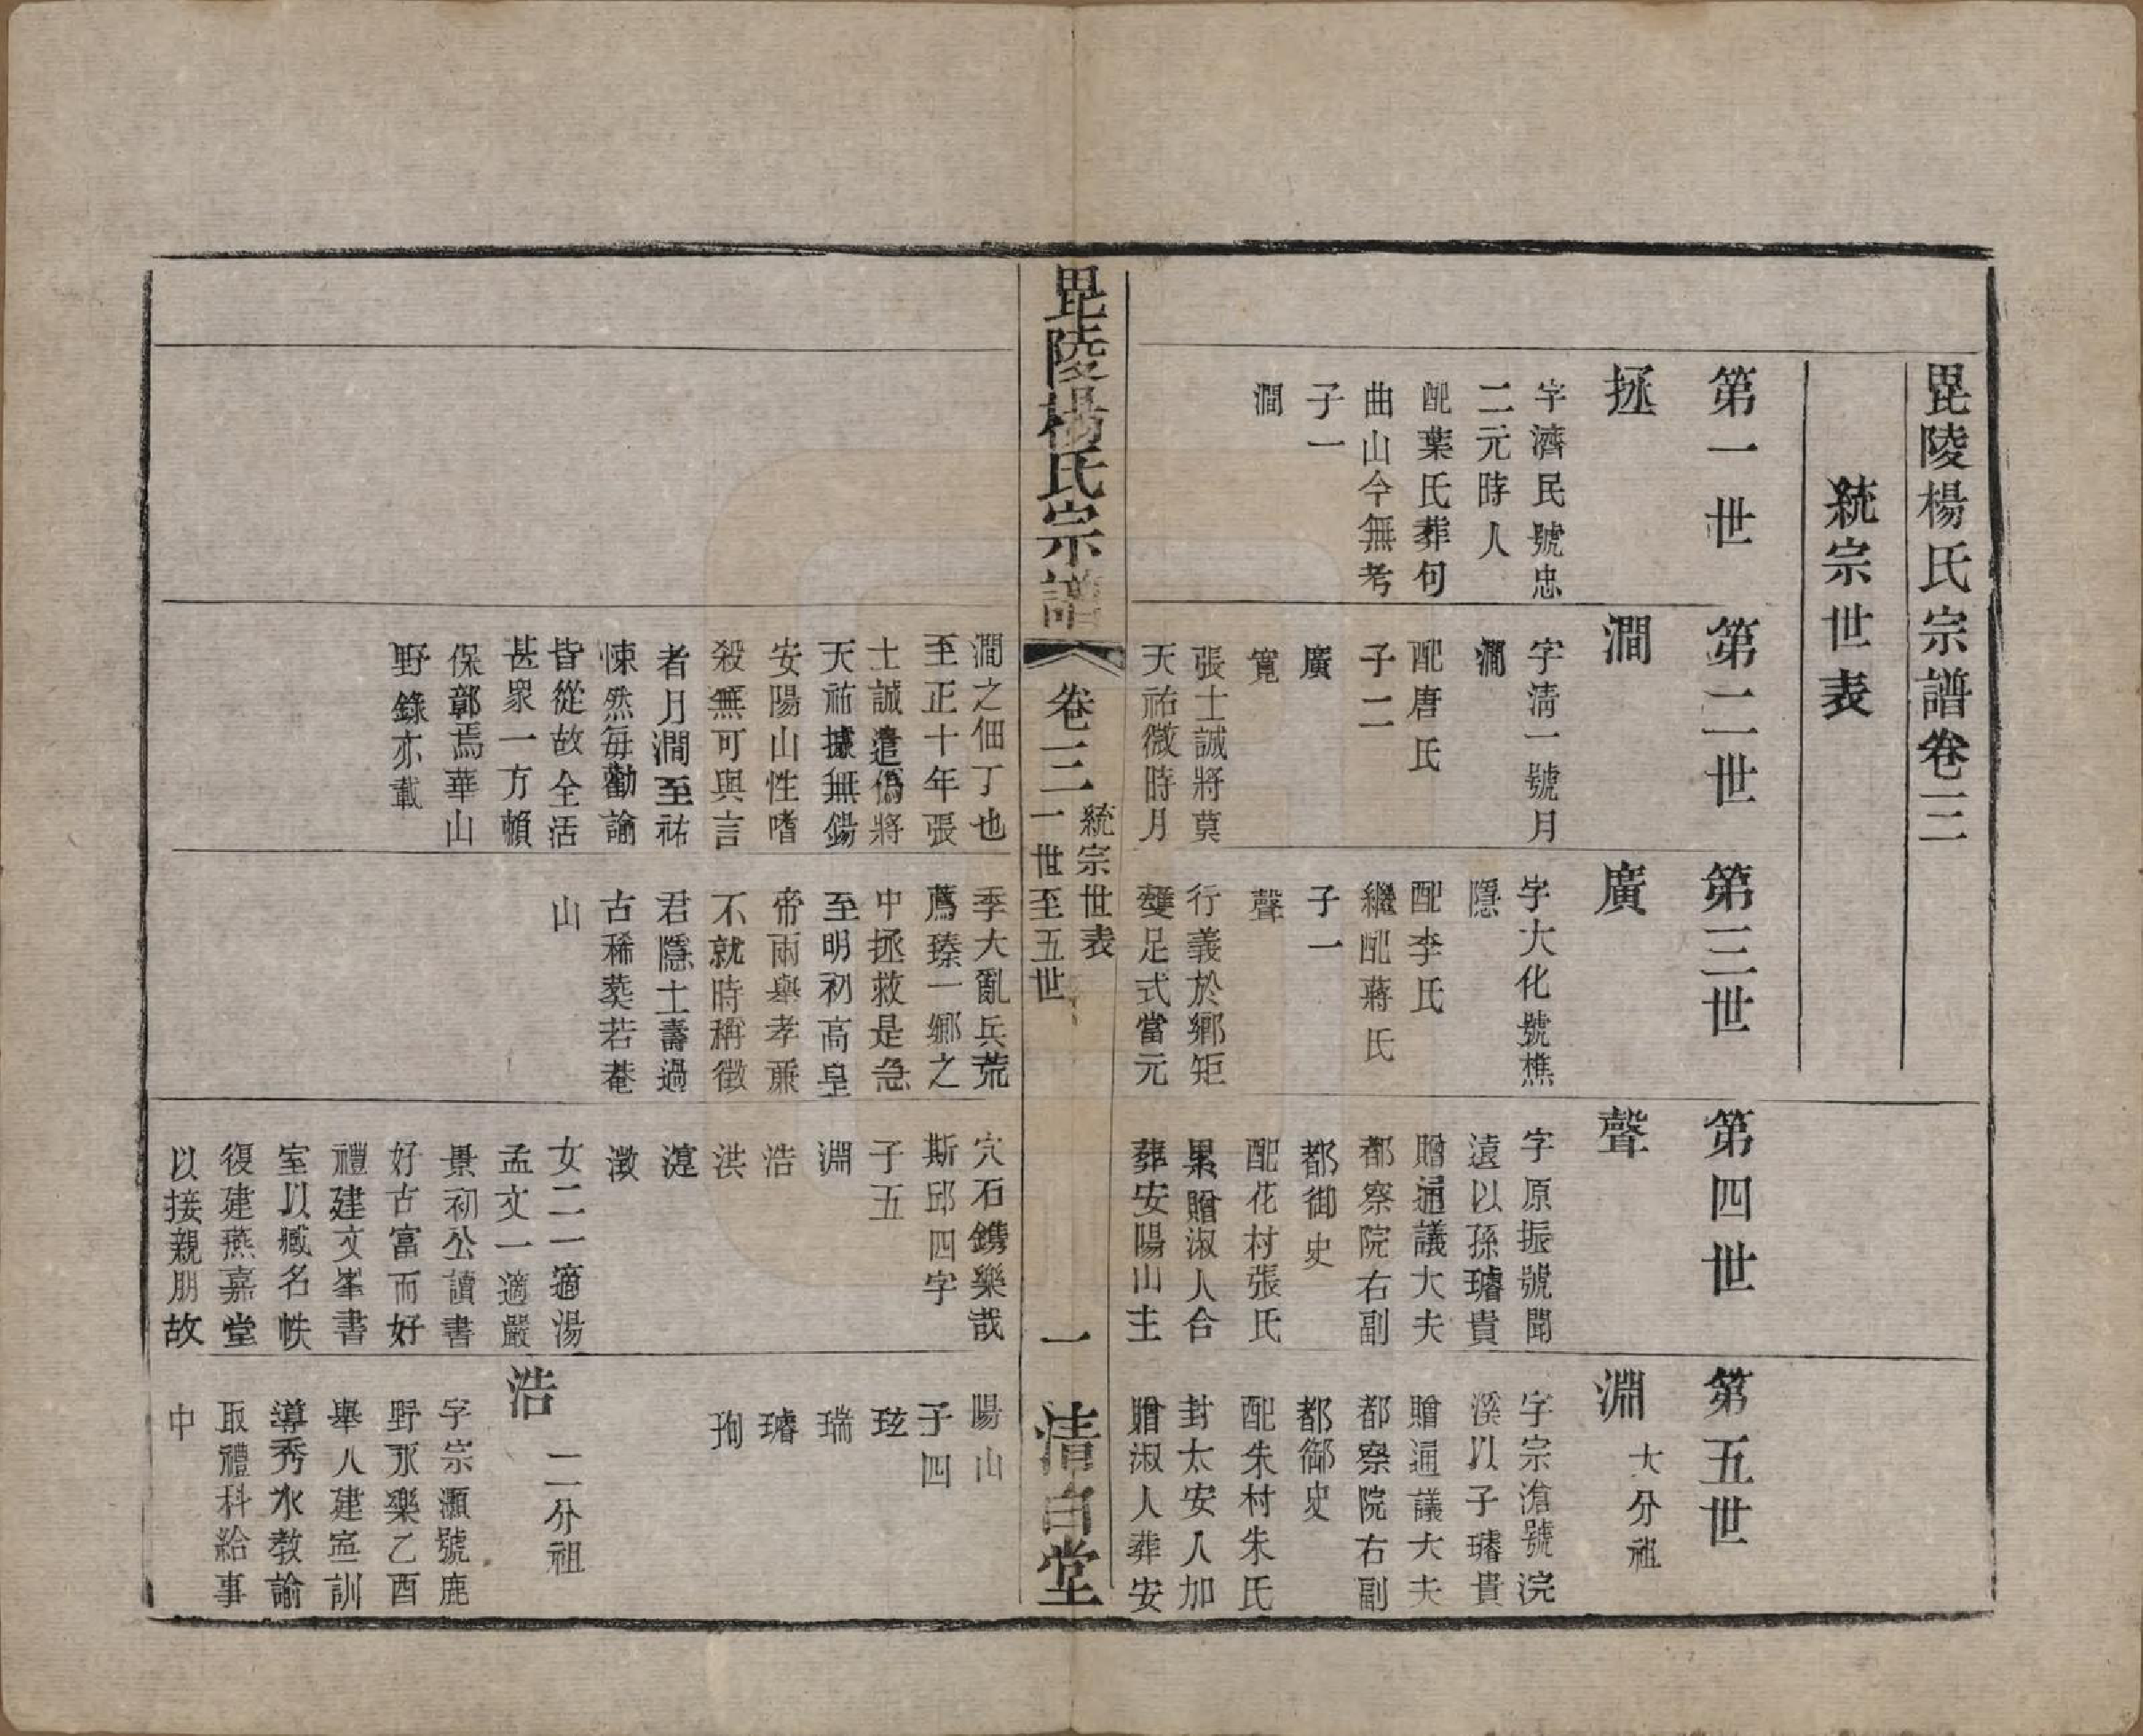 毘陵楊氏宗譜卷三
統宗世表
第一世
拯
字濟民號忠
二元時人
配葉氏葬句
曲山今無考
子一
澗
第二世
澗
字淸一號月
澗
配唐氏
子二
廣
寬
張士誠將莫
天祐微時月
澗之佃丁也
至正十年張
士誠遣僞將
天祐據無錫
安陽山性嗜
殺無可與言
者月澗至祐
悚然每勸諭
皆從故全活
甚衆一方賴
保鄣焉華山
野錄亦載
第三世
廣
字大化號樵
隱
配李氏
繼配蔣氏
子一
聲
行義於鄉矩
雙足式當元
季大亂兵荒
薦臻一鄉之
中拯救是急
至明初高皇
帝兩舉孝亷
不就時稱徵
君隱士壽過
古稀葬若菴
山
第四世
聲
字原振號聞
遠以孫璿貴
贈通議大夫
都察院右副
都御史
配花村張氏
累贈淑人合
葬安陽山主
穴石鐫樂哉
斯邱四字
子五
淵
浩
洪
澤
澂
女二一適湯
孟文一適嚴
景初公讀書
好古富而好
禮建文峯書
室以藏名帙
復建燕嘉堂
以接親朋故
第五世
淵 大分祖
字宗滄號浣
溪以子璿貴
贈通議大夫
都察院右副
都御史
配朱村朱氏
封太安人加
贈淑人葬安
陽山
子四
玹
瑞
璿
珣
浩 二分祖
字宗灝號鹿
野永樂乙酉
舉人建寧訓
導秀水教諭
取禮科給事
中
毘陵楊氏宗譜
卷三
統宗世表
一世至五世
一
淸白堂